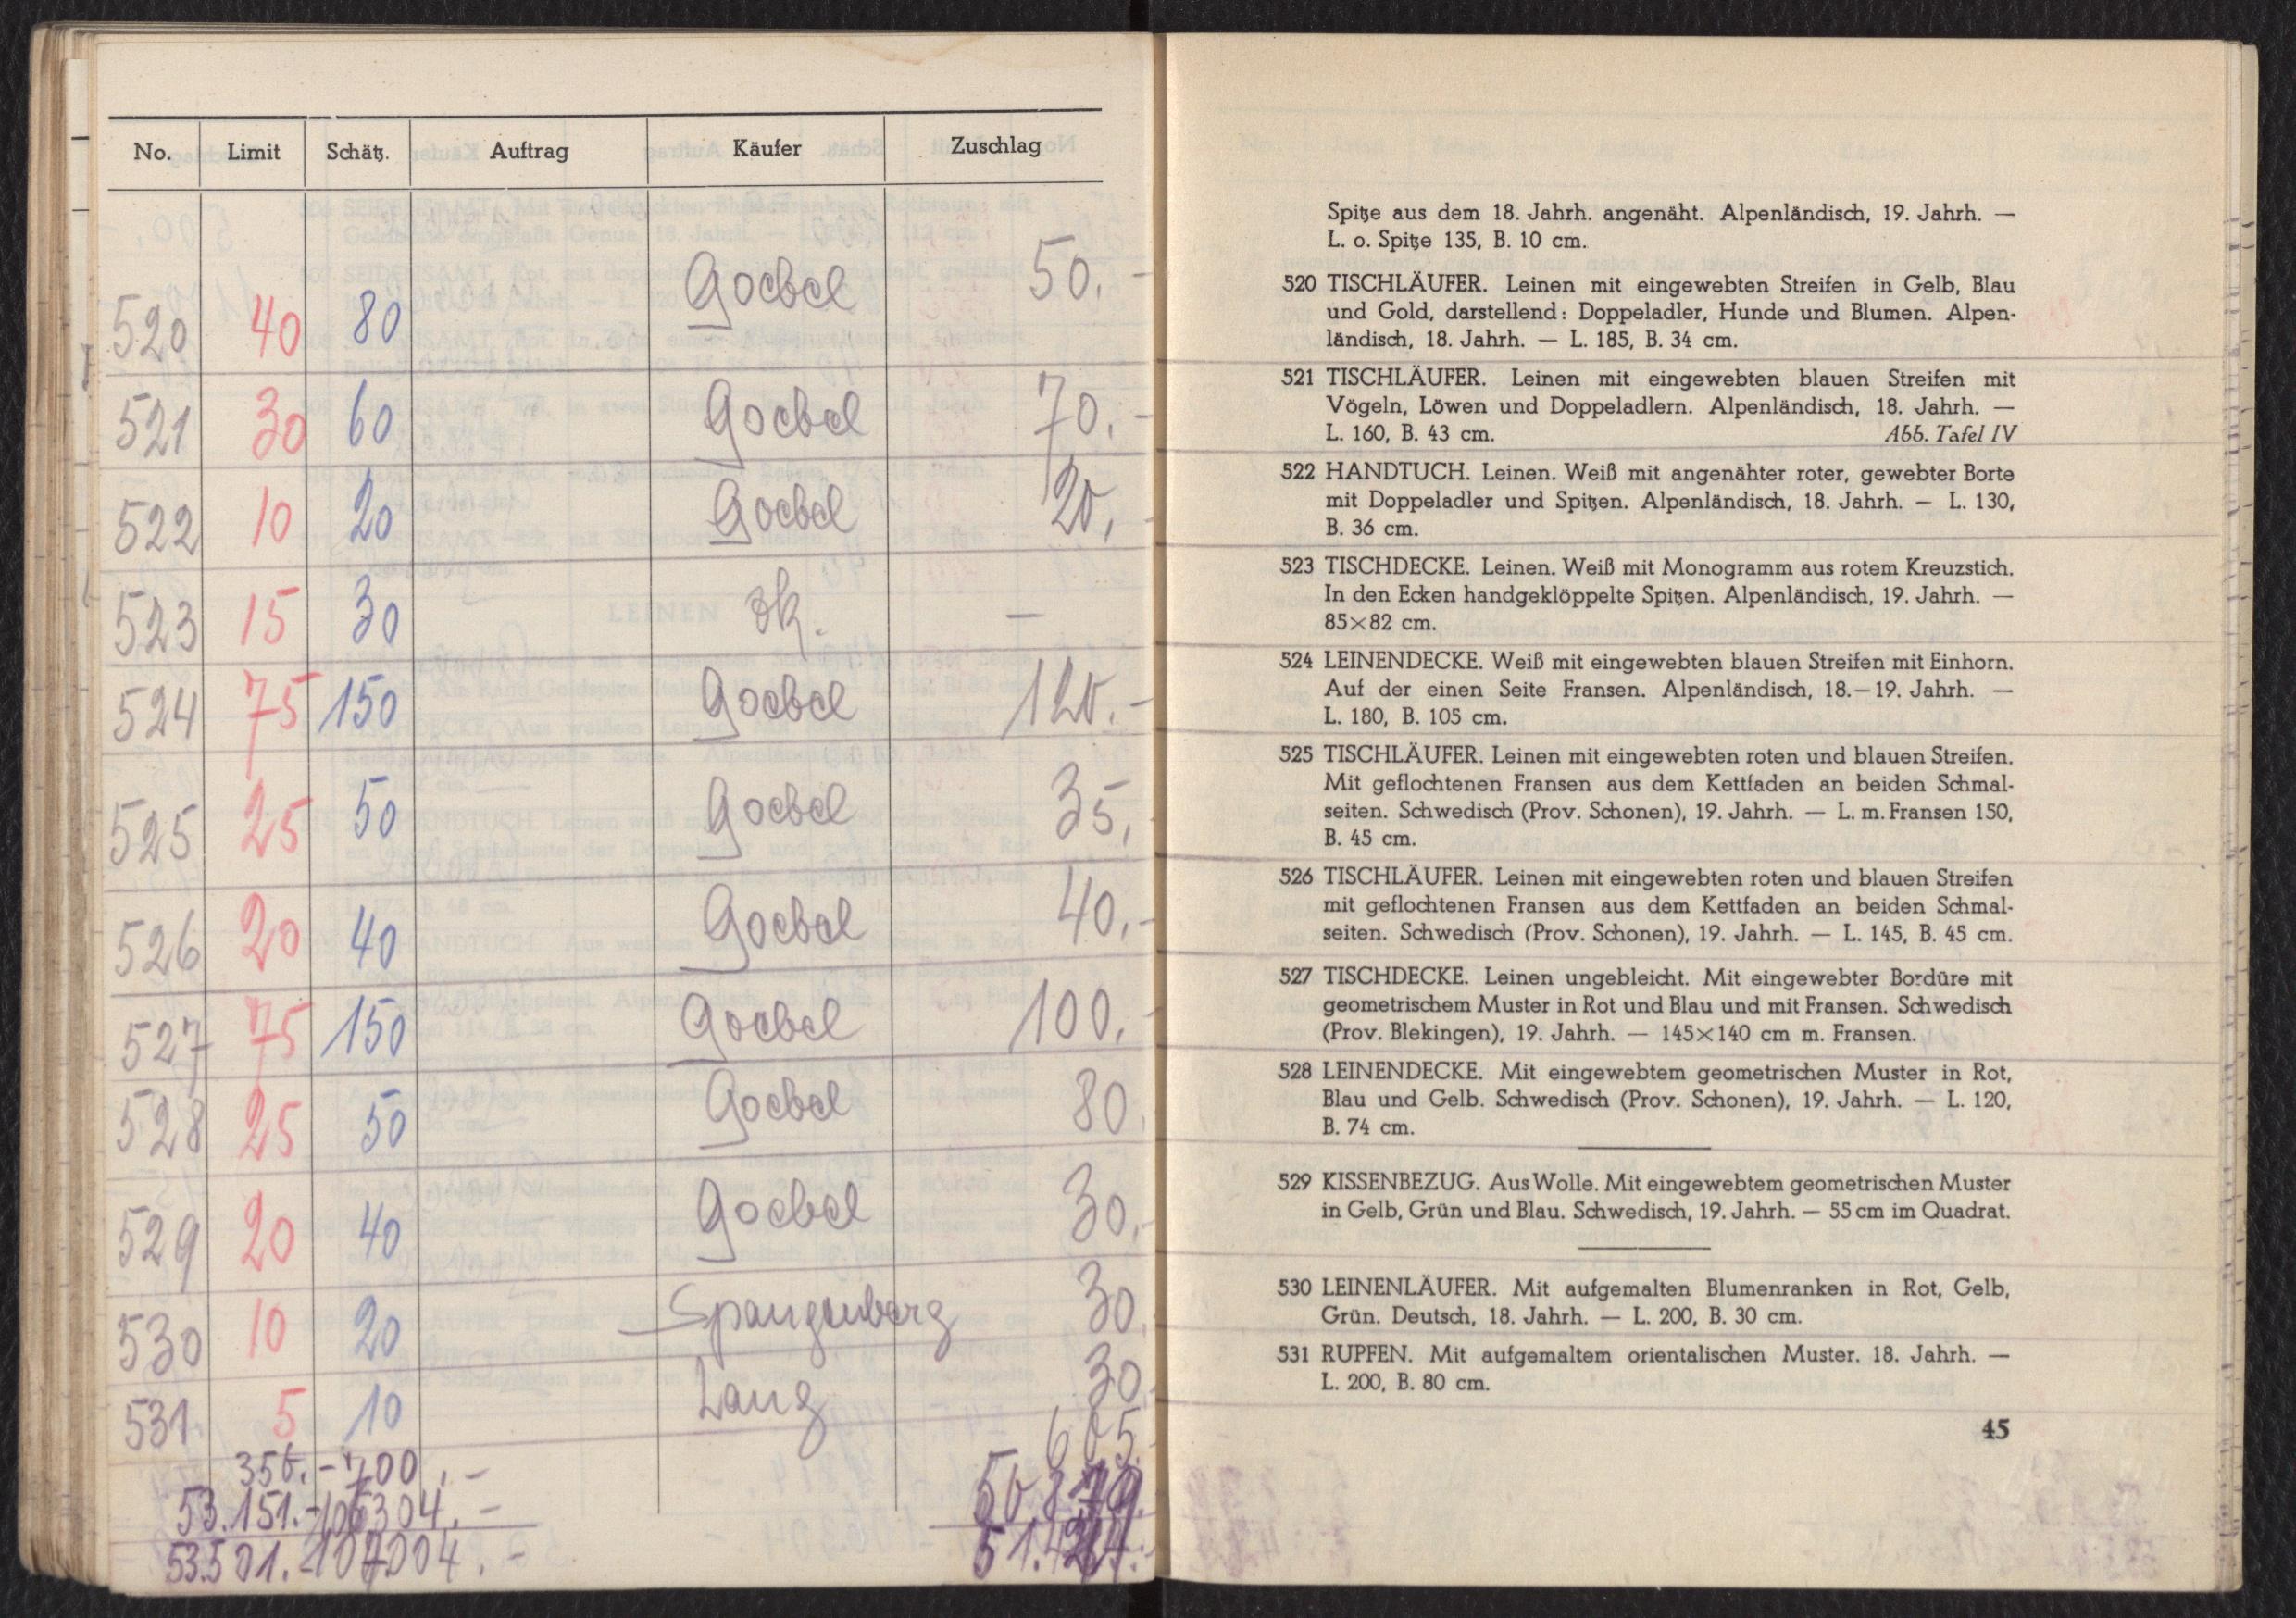 No. Limit Schätz. Auftrag Käufer Zuschlag
520 40 80 Goebel 50.-
521 30 60 Goebel 70.-
522 10 20 Goebel 20.-
523 15 30 zk. —
524 75 150 Goebel 120.-
525 25 50 Goebel 35.
526 20 40 Goebel 40.-
527 75 150 Goebel 100.-
528 25 50 Goebel 80.
529 20 40 Goebel 30.-
530 10 20 Spangenberg 30.
531. 5 10 Lang 30.-
605.
350.- 700.-
53.151.- 106304.-
53501.- 107004.-
Spitze aus dem 18. Jahrh. angenäht. Alpenländisch, 19. Jahrh. —
L. o. Spitze 135, B. 10 cm.
520 TISCHLÄUFER. Leinen mit eingewebten Streifen in Gelb, Blau
und Gold, darstellend: Doppeladler, Hunde und Blumen. Alpen-
ländisch, 18. Jahrh. — L. 185, B. 34 cm.
521 TISCHLÄUFER. Leinen mit eingewebten blauen Streifen mit
Vögeln, Löwen und Doppeladlern. Alpenländisch, 18. Jahrh. —
L. 160, B. 43 cm. Abb. Tafel IV
522 HANDTUCH. Leinen. Weiß mit angenähter roter, gewebter Borte
mit Doppeladler und Spitzen. Alpenländisch, 18. Jahrh. — L. 130,
B. 36 cm.
523 TISCHDECKE. Leinen. Weiß mit Monogramm aus rotem Kreuzstich.
In den Ecken handgeklöppelte Spitzen. Alpenländisch, 19. Jahrh. —
85×82 cm.
524 LEINENDECKE. Weiß mit eingewebten blauen Streifen mit Einhorn.
Auf der einen Seite Fransen. Alpenländisch, 18.—19. Jahrh. —
L. 180, B. 105 cm.
525 TISCHLÄUFER. Leinen mit eingewebten roten und blauen Streifen.
Mit geflochtenen Fransen aus dem Kettfaden an beiden Schmal-
seiten. Schwedisch (Prov. Schonen), 19. Jahrh. — L. m. Fransen 150,
B. 45 cm.
526 TISCHLÄUFER. Leinen mit eingewebten roten und blauen Streifen
mit geflochtenen Fransen aus dem Kettfaden an beiden Schmal-
seiten. Schwedisch (Prov. Schonen), 19. Jahrh. — L. 145, B. 45 cm.
527 TISCHDECKE. Leinen ungebleicht. Mit eingewebter Bordüre mit
geometrischem Muster in Rot und Blau und mit Fransen. Schwedisch
(Prov. Blekingen), 19. Jahrh. — 145×140 cm m. Fransen.
528 LEINENDECKE. Mit eingewebtem geometrischen Muster in Rot,
Blau und Gelb. Schwedisch (Prov. Schonen), 19. Jahrh. — L. 120,
B. 74 cm.
529 KISSENBEZUG. Aus Wolle. Mit eingewebtem geometrischen Muster
in Gelb, Grün und Blau. Schwedisch, 19. Jahrh. — 55 cm im Quadrat.
530 LEINENLÄUFER. Mit aufgemalten Blumenranken in Rot, Gelb,
Grün. Deutsch, 18. Jahrh. — L. 200, B. 30 cm.
531 RUPFEN. Mit aufgemaltem orientalischen Muster. 18. Jahrh. —
L. 200, B. 80 cm.
45